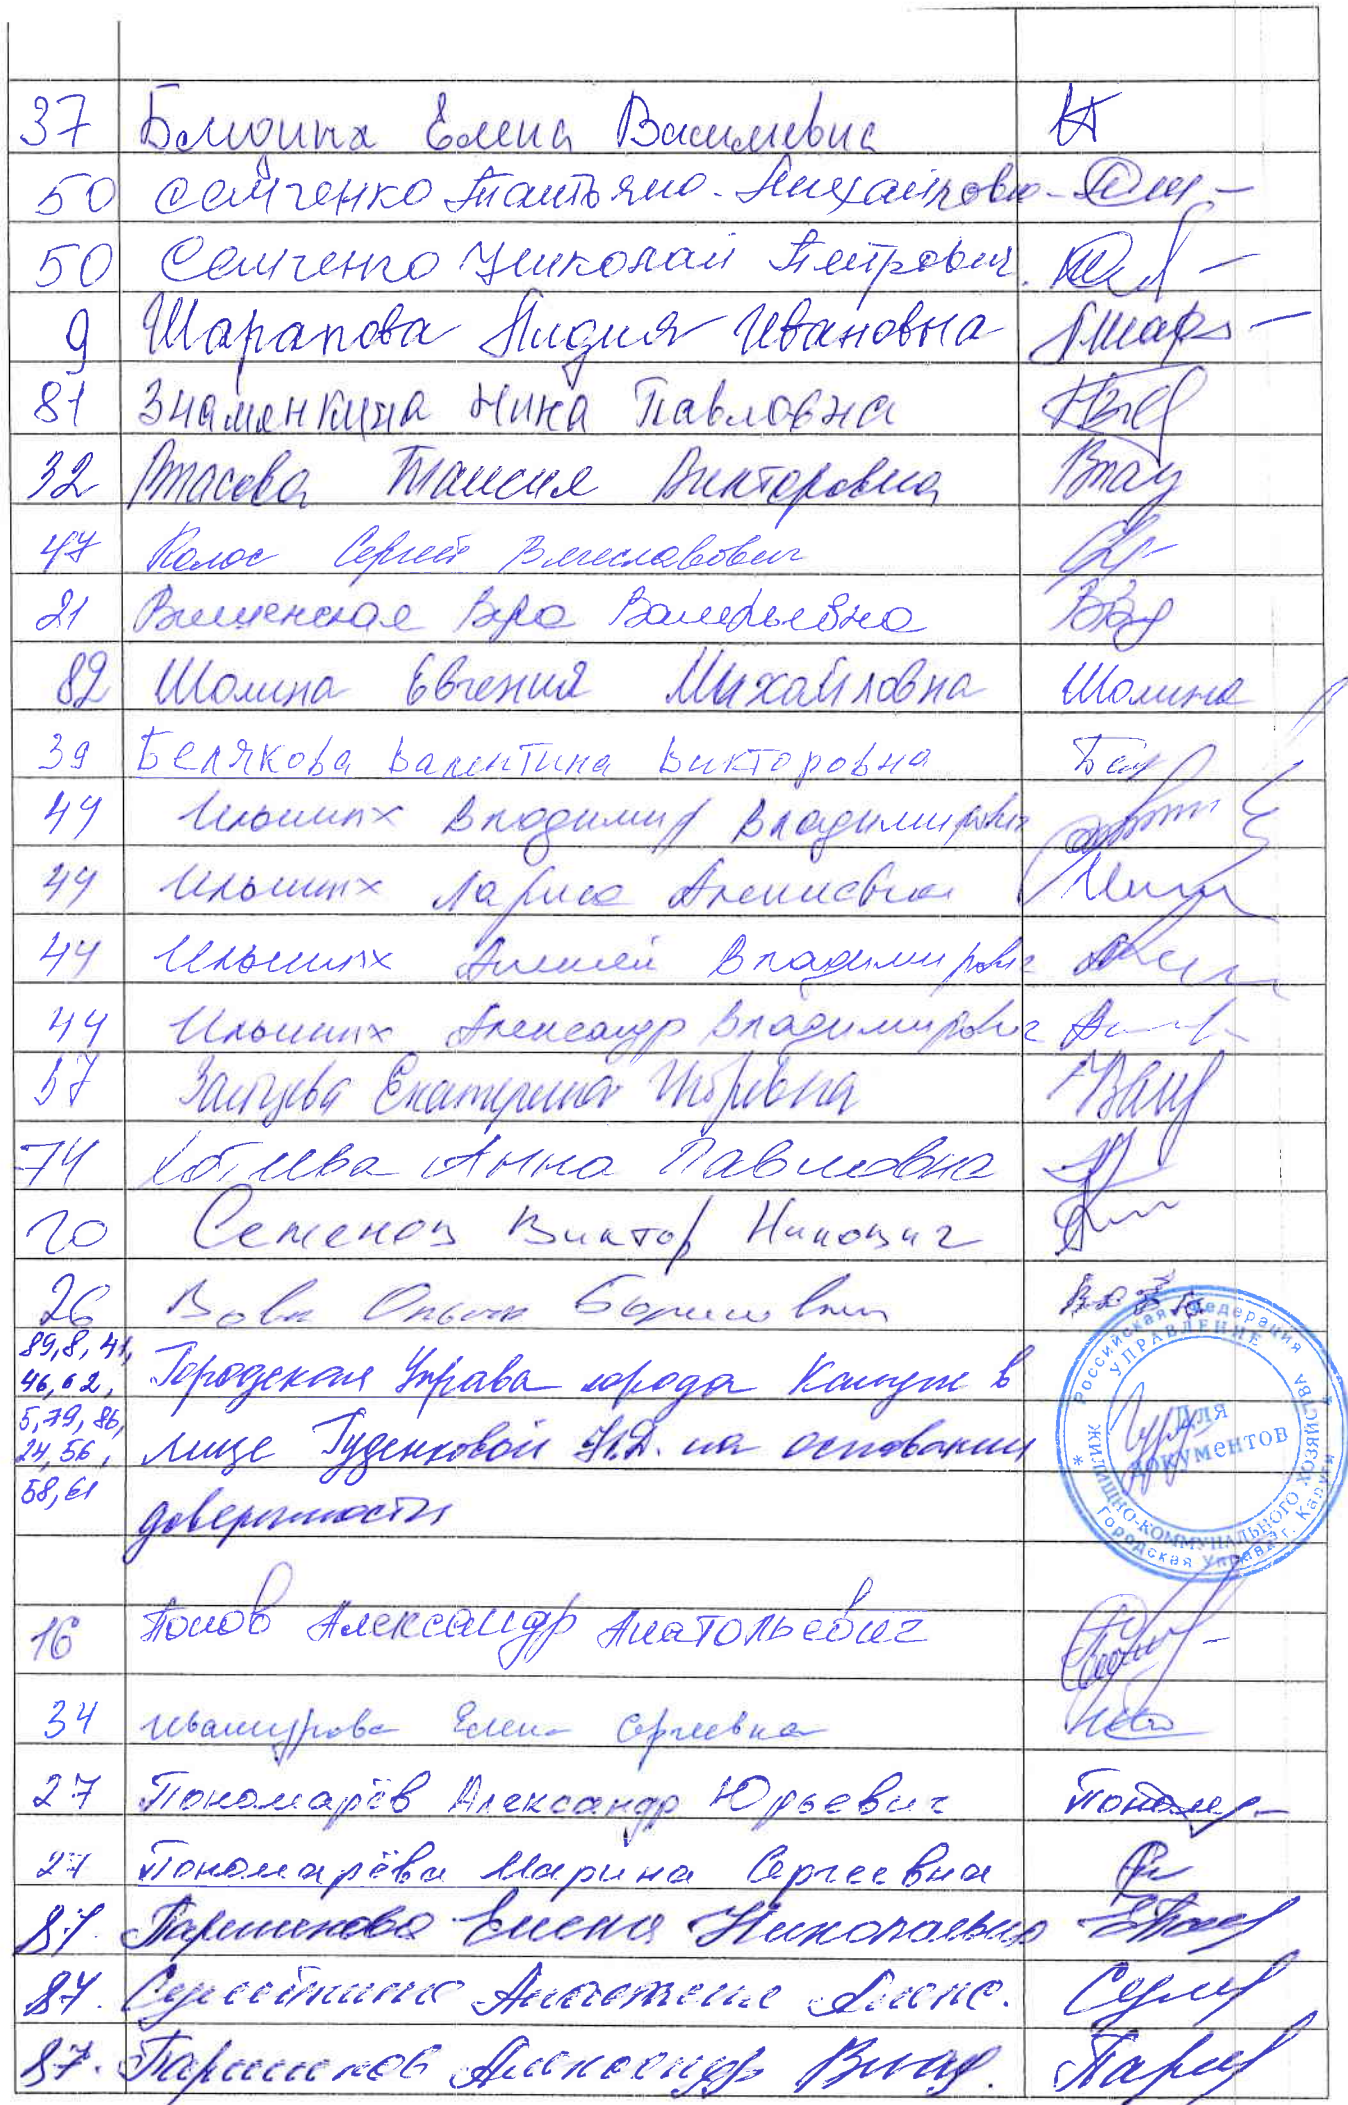 37 Елена Васильевна
50 Семченко Татьяна Михайловна
50 Семченко Николай Петрович
9 Шарапова Лидия Ивановна
81 Знаменкина Нина Павловна
32 Власова Таисия Викторовна
47 Колос Сергей Вячеславович
21 Вера Валерьевна
82 Шолина Евгения Михайловна Шолина
39 Белякова Валентина Викторовна Бел
44 Ильиных Владимир Владимирович
44 Ильиных Лариса Алексеевна
44 Ильиных Алексей Владимирович
44 Ильиных Александр Владимирович
57 Зайцева Екатерина Игоревна
74 Анна Павловна
20 Семенов Виктор
26 Вовк Ольга Борисовна
89, 8, 41, Городская Управа города Калуги в
46, 62,
5, 79, 86, лице Гуденковой Н.Д. на основании
24, 56,
58, 61 доверенности
Российская Федерация
УПРАВЛЕНИЕ
ЖИЛИЩНО-КОММУНАЛЬНОГО ХОЗЯЙСТВА
Городская Управа г. Калуги
Для
документов
16 Попов Александр Анатольевич
34 Елена Сергеевна
27 Пономарёв Александр Юрьевич
27 Пономарёва Марина Сергеевна
87. Паршикова Елена Николаевна
87. Анастасия Алекс.
87. Паршиков Александр Влад.